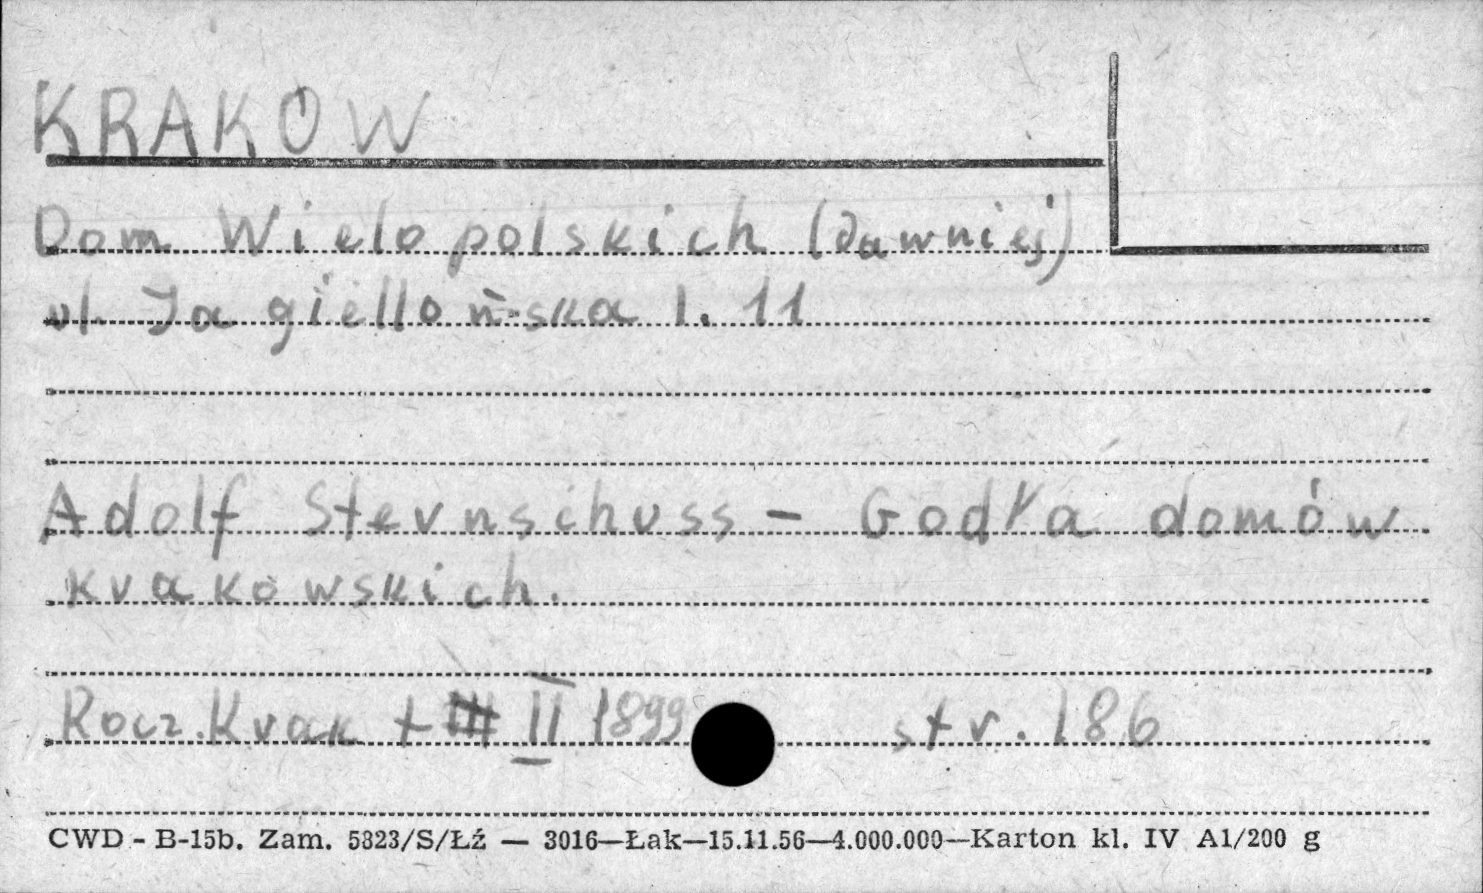 KRAKÓW
Dom Wielopolskich (dawniej)
ul. Jagiellońska l. 11
Adolf Sternschuss - Godła domów
krakowskich.
Rocz. Krak t II 1899 str. 186
CWD - B-15b. Zam. 5823/S/Łź — 3016—Łak—15.11.56—4.000.000—Karton kl. IV A1/200 g